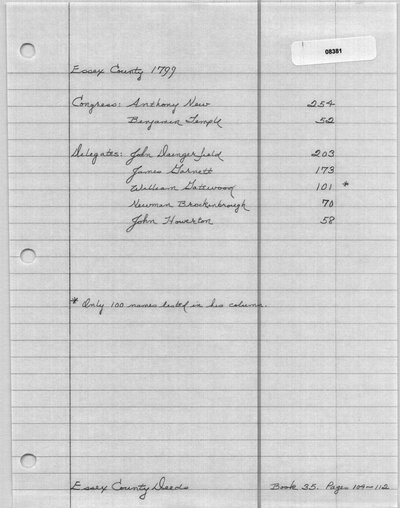 08381
Essex County 1799
Congress: Anthony New 254
Benjamin Temple 52
Delegates: John Daingerfield 203
James Garnett 173
William Gatewood 101 *
Newman Brockenbrough 70
John Howerton 58
* Only 100 names listed in his column.
Essex County Deeds Book 35. Pages 109-112